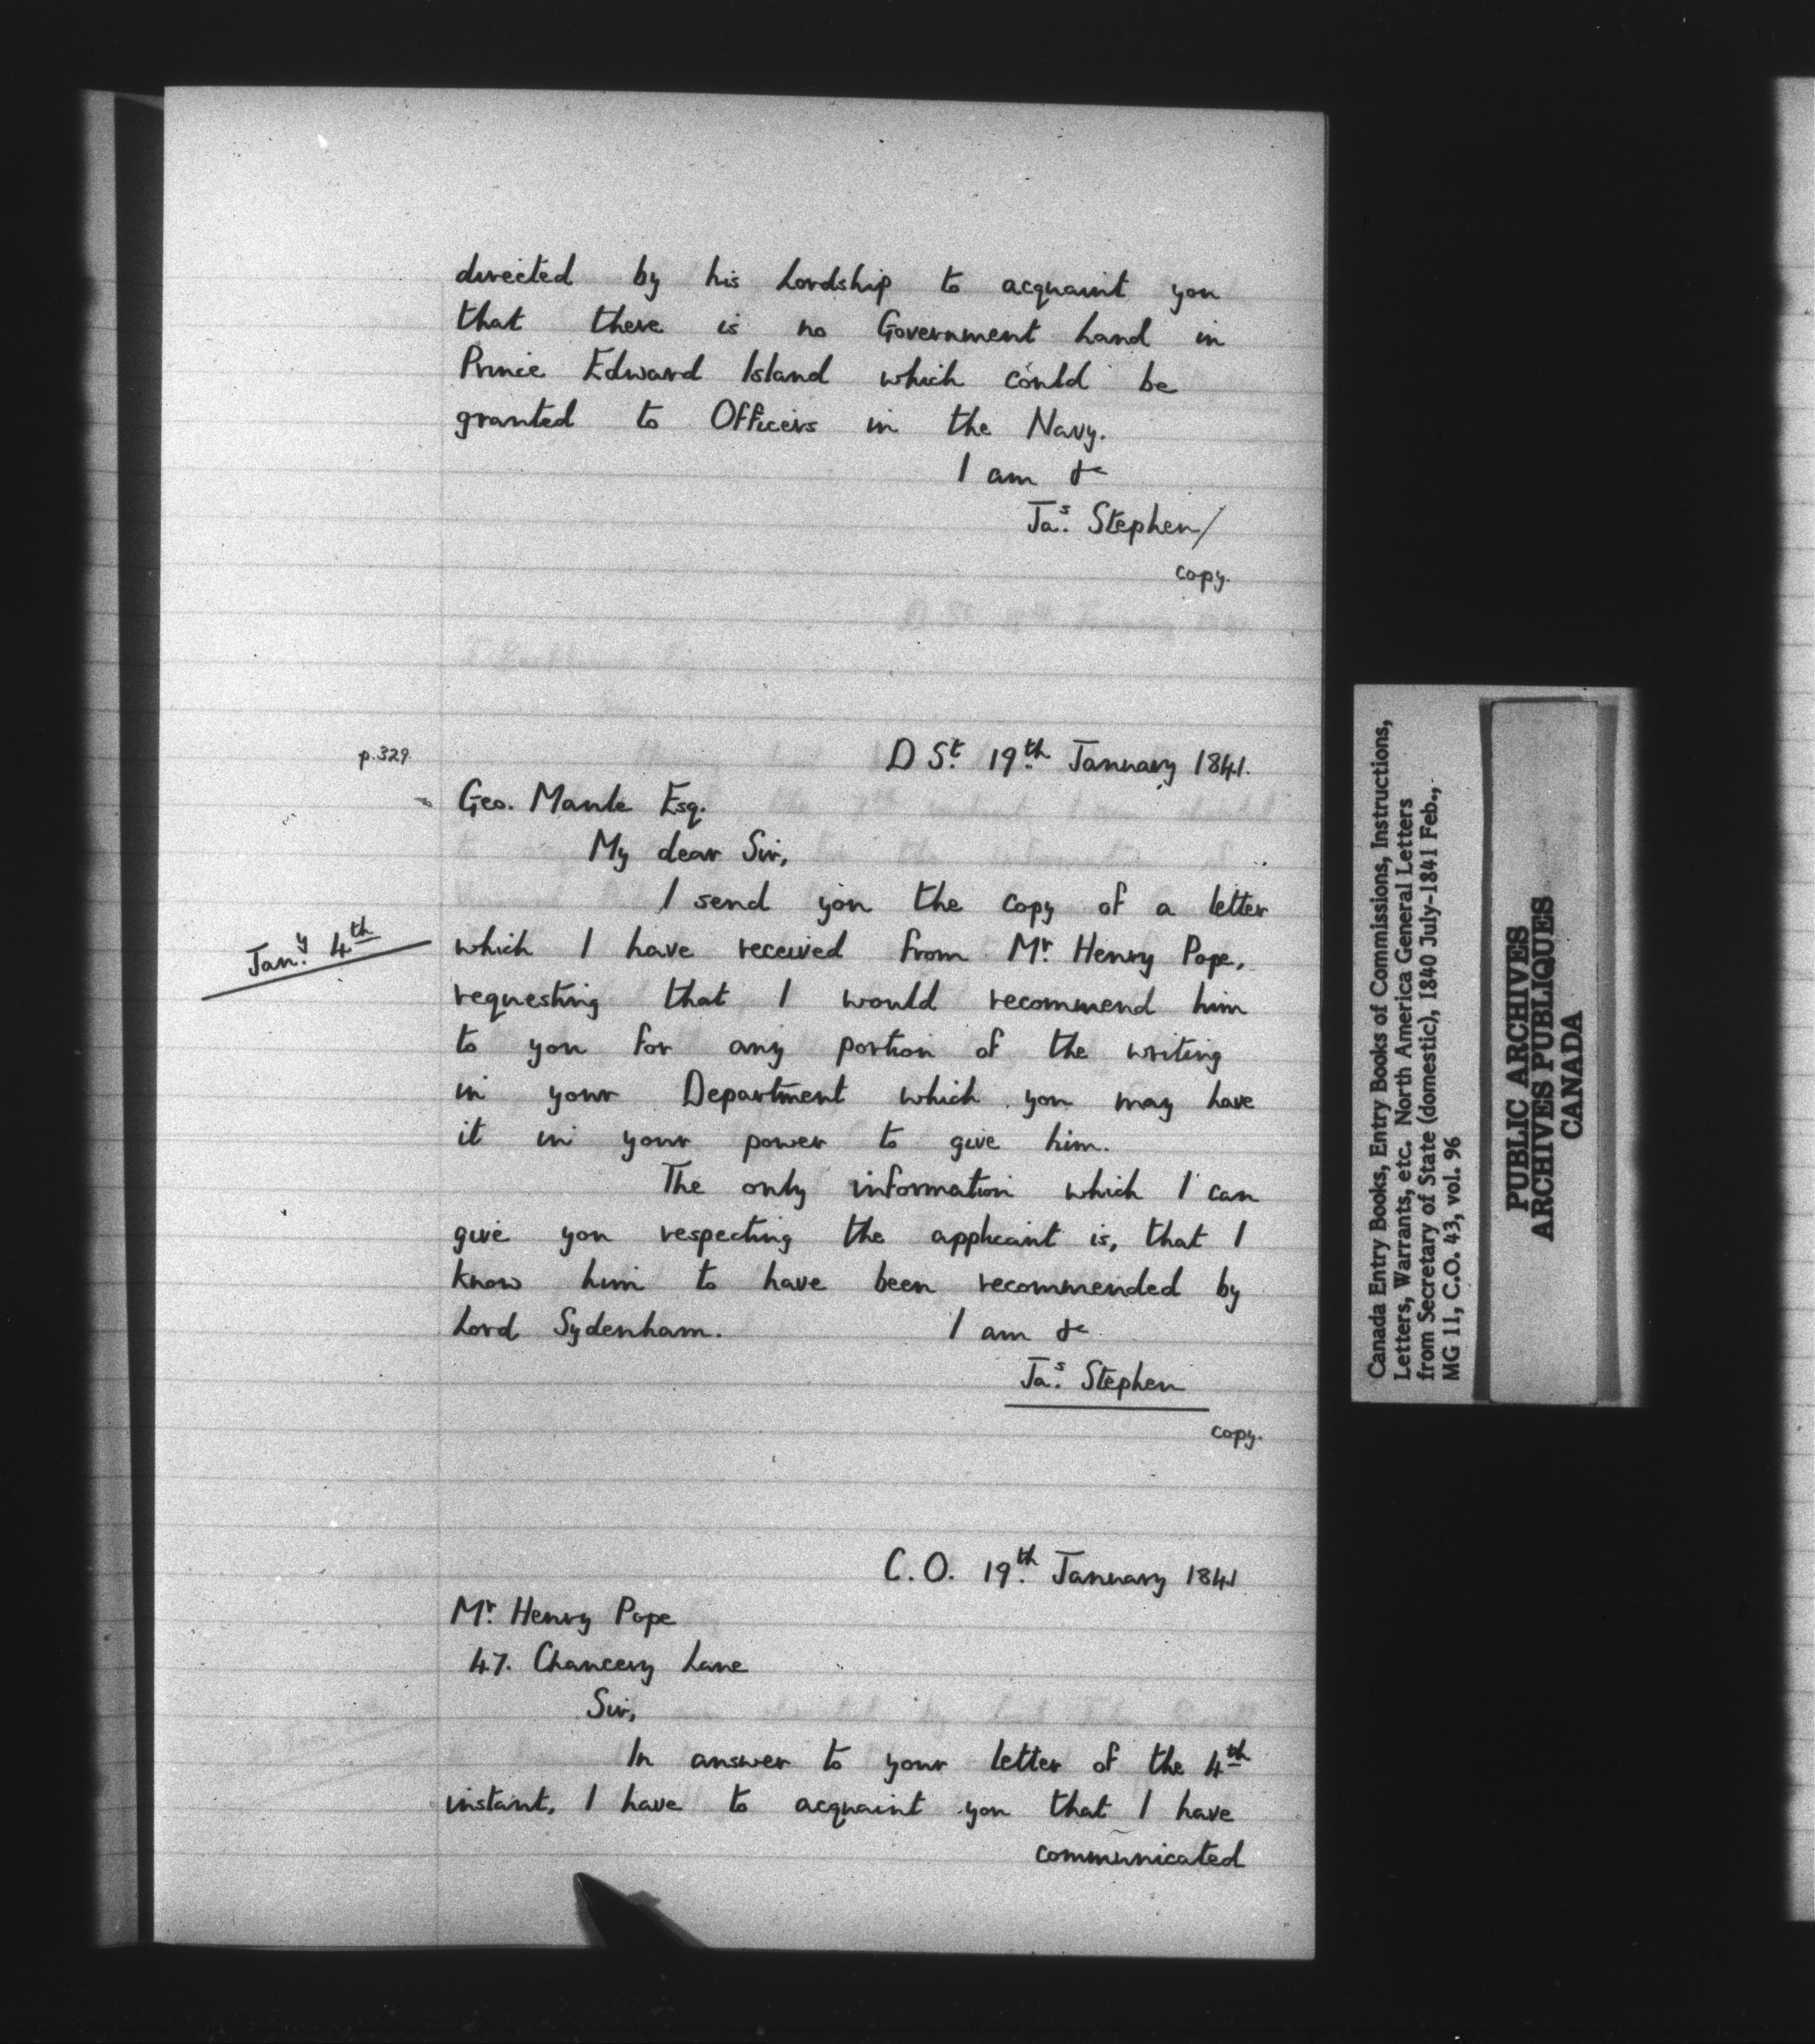 directed by his Lordship to acquaint you
that there is no Government Land in
Prince Edward Island which could be
granted to Officers in the Navy.
I am &c
Jas. Stephen/
copy.
p.329.
D St. 19th January 1841.
Geo. Maule Esq.
My dear Sir,
I send you the copy of a letter
Jany. 4th
which I have received from Mr. Henry Pope,
requesting that I would recommend him
to you for any portion of the writing
in your Department which you may have
it in your power to give him.
The only information which I can
give you respecting the applicant is, that I
know him to have been recommended by
Lord Sydenham. I am &c
Jas. Stephen
copy.
C.O. 19th January 1841
Mr. Henry Pope
47. Chancery Lane
Sir,
In answer to your letter of the 4th
instant, I have to acquaint you that I have
communicated
Canada Entry Books, Entry Books of Commissions, Instructions,
Letters, Warrants, etc. North America General Letters
from Secretary of State (domestic), 1840 July-1841 Feb.,
MG 11, C.O. 43, vol. 96
PUBLIC ARCHIVES
ARCHIVES PUBLIQUES
CANADA